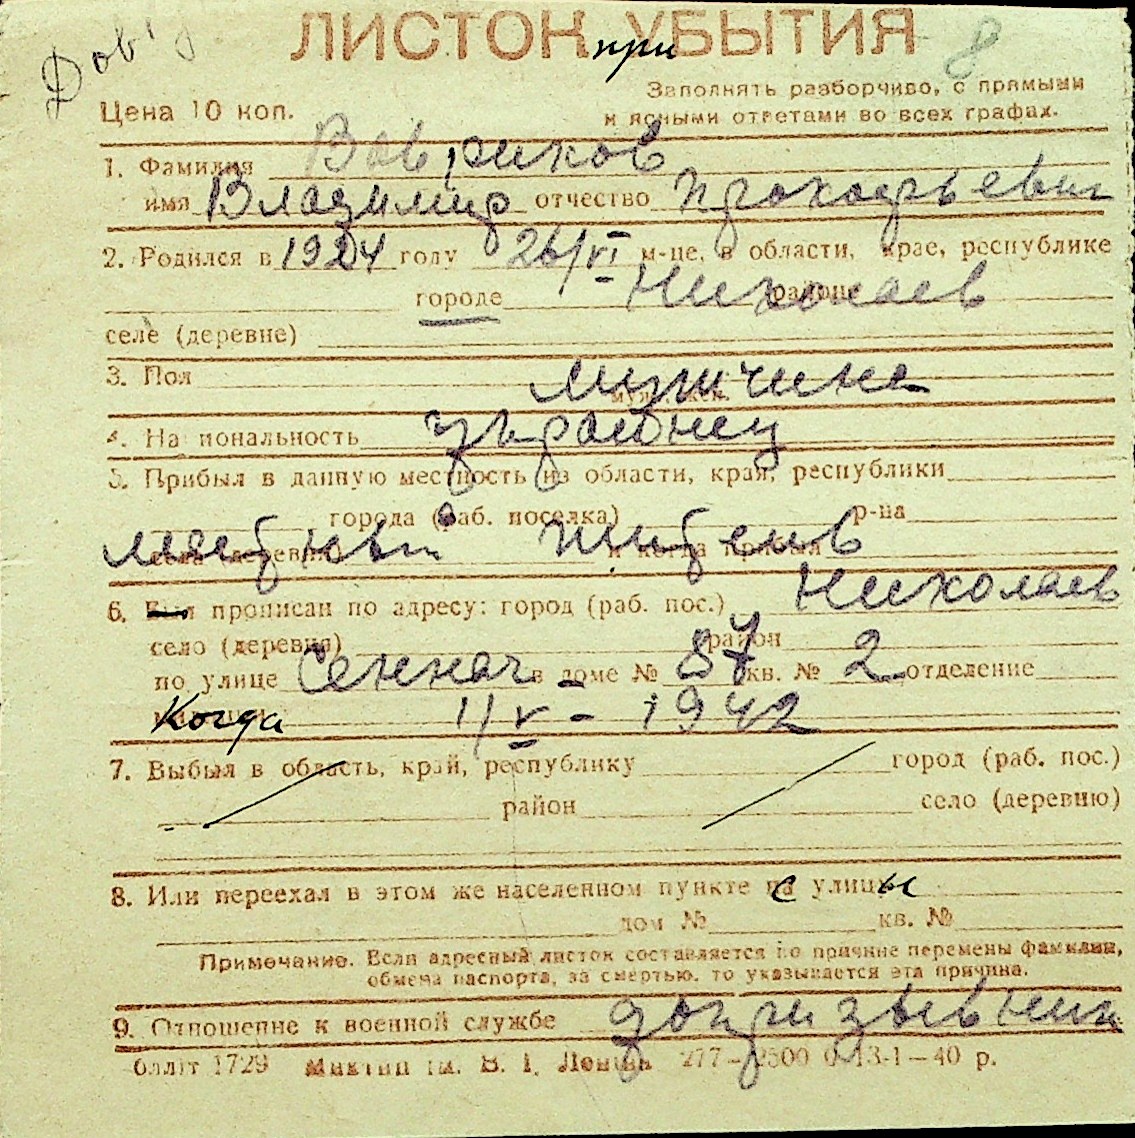 Дов
ЛИСТОК при УБЫТИЯ 8
Заполнять разборчиво, с прямыми
Цена 10 коп. и ясными ответами во всех графах.
1. Фамилия Вавриков
имя Владимир отчество Прокофьевич
2. Родился в 1924 году 26/VI м-це, в области, крае, республике
городе районе Николаев
селе (деревне)
3. Пол мужчина
4. Национальность украинец
5. Прибыл в данную местность из области, края, республики
города (раб. поселка) р-на
села (деревни) и когда прибыл
6. прописан по адресу: город (раб. пос.) Николаев
село (деревня) район
по улице Сенная в доме № 87 кв. № 2 отделение
Когда 1/V - 1942
7. Выбыл в область, край, республику город (раб. пос.)
район село (деревню)
8. Или переехал в этом же населенном пункте с улицы
дом № кв. №
Примечание. Если адресный листок составляется по причине перемены фамилии,
обмена паспорта, за смертью, то указывается эта причина.
9. Отношение к военной службе
1729 В. І. Леніна 277—2500 0 13-1—40 р.